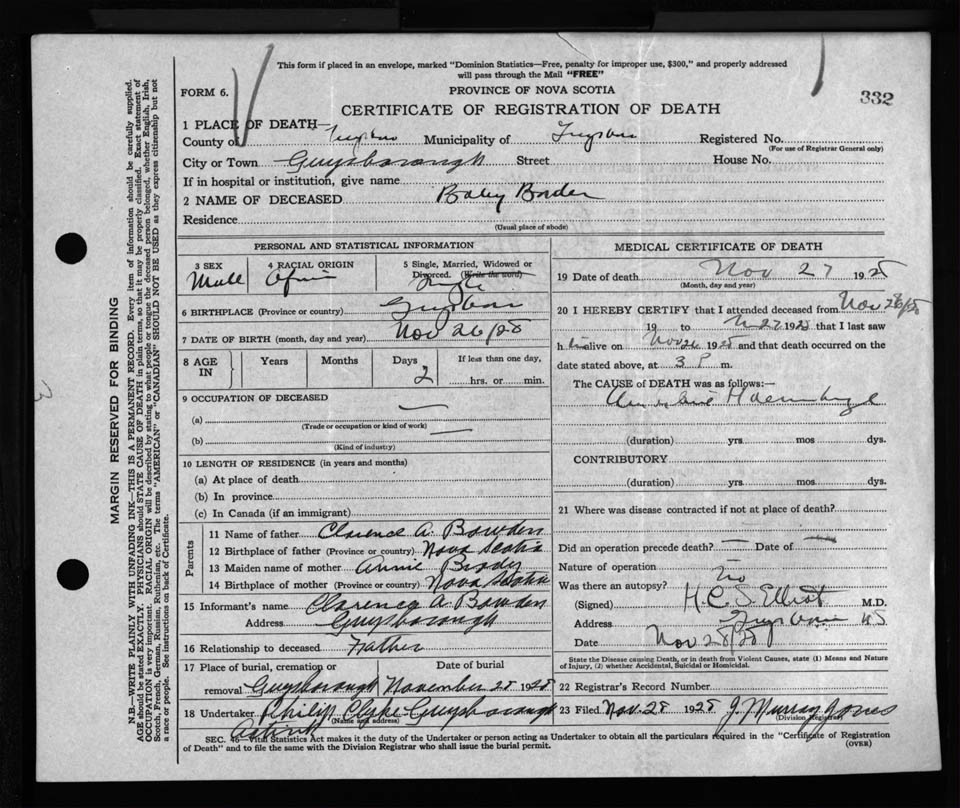 This form if placed in an envelope, marked "Dominion Statistics—Free, penalty for improper use, $300," and properly addressed
will pass through the Mail "FREE"
FORM 6.
PROVINCE OF NOVA SCOTIA
332
CERTIFICATE OF REGISTRATION OF DEATH
1 PLACE OF DEATH—
County of Municipality of Registered No.
(For use of Registrar General only)
City or Town Guysborough Street House No.
If in hospital or institution, give name
2 NAME OF DECEASED Baby
Residence
(Usual place of abode)
PERSONAL AND STATISTICAL INFORMATION
3 SEX 4 RACIAL ORIGIN 5 Single, Married, Widowed or
Divorced. (Write the word)
Male Single
6 BIRTHPLACE (Province or country)
7 DATE OF BIRTH (month, day and year) Nov 26
8 AGE IN Years Months Days If less than one day,
2 hrs. or min.
9 OCCUPATION OF DECEASED
(a)
(Trade or occupation or kind of work)
(b)
(Kind of industry)
10 LENGTH OF RESIDENCE (in years and months)
(a) At place of death
(b) In province
(c) In Canada (if an immigrant)
Parents
11 Name of father Clarence A. Bowden
12 Birthplace of father (Province or country) Nova Scotia
13 Maiden name of mother Annie
14 Birthplace of mother (Province or country) Nova Scotia
15 Informant's name Clarence A. Bowden
Address Guysborough
16 Relationship to deceased Father
17 Place of burial, cremation or removal Date of burial
Guysborough November 28 1928
18 Undertaker Philip Guysborough
(Name and address)
MEDICAL CERTIFICATE OF DEATH
19 Date of death Nov 27 1928
(Month, day and year)
20 I HEREBY CERTIFY that I attended deceased from Nov 26
19 to 192 that I last saw
h alive on Nov 26 1928 and that death occurred on the
date stated above, at 3 P m.
The CAUSE OF DEATH was as follows:—
(duration) yrs. mos dys.
CONTRIBUTORY
(duration) yrs. mos. dys.
21 Where was disease contracted if not at place of death?
Did an operation precede death? Date of
Nature of operation
Was there an autopsy? no
(Signed) H. C. S. Elliot M.D.
Address
Date Nov 28
State the Disease causing Death, or in death from Violent Causes, state (1) Means and Nature
of Injury, (2) whether Accidental, Suicidal or Homicidal.
22 Registrar's Record Number
23 Filed Nov. 28 1928 J. Murray Jones
(Division Registrar)
SEC. Vital Statistics Act makes it the duty of the Undertaker or person acting as Undertaker to obtain all the particulars required in the "Certificate of Registration
of Death" and to file the same with the Division Registrar who shall issue the burial permit.
(OVER)
MARGIN RESERVED FOR BINDING
N.B.—WRITE PLAINLY WITH UNFADING INK—THIS IS A PERMANENT RECORD. Every item of information should be carefully supplied.
AGE should be stated EXACTLY. PHYSICIANS should STATE CAUSE OF DEATH in plain terms, so that it may be properly classified. Exact statement of
OCCUPATION is very important. RACIAL ORIGIN will be described by stating to what people or tongue the deceased person belonged, whether English, Irish,
Scotch, French, German, Russian, Ruthenian, etc. The terms "AMERICAN" or "CANADIAN" SHOULD NOT BE USED as they express citizenship but not
a race or people. See instructions on back of Certificate.